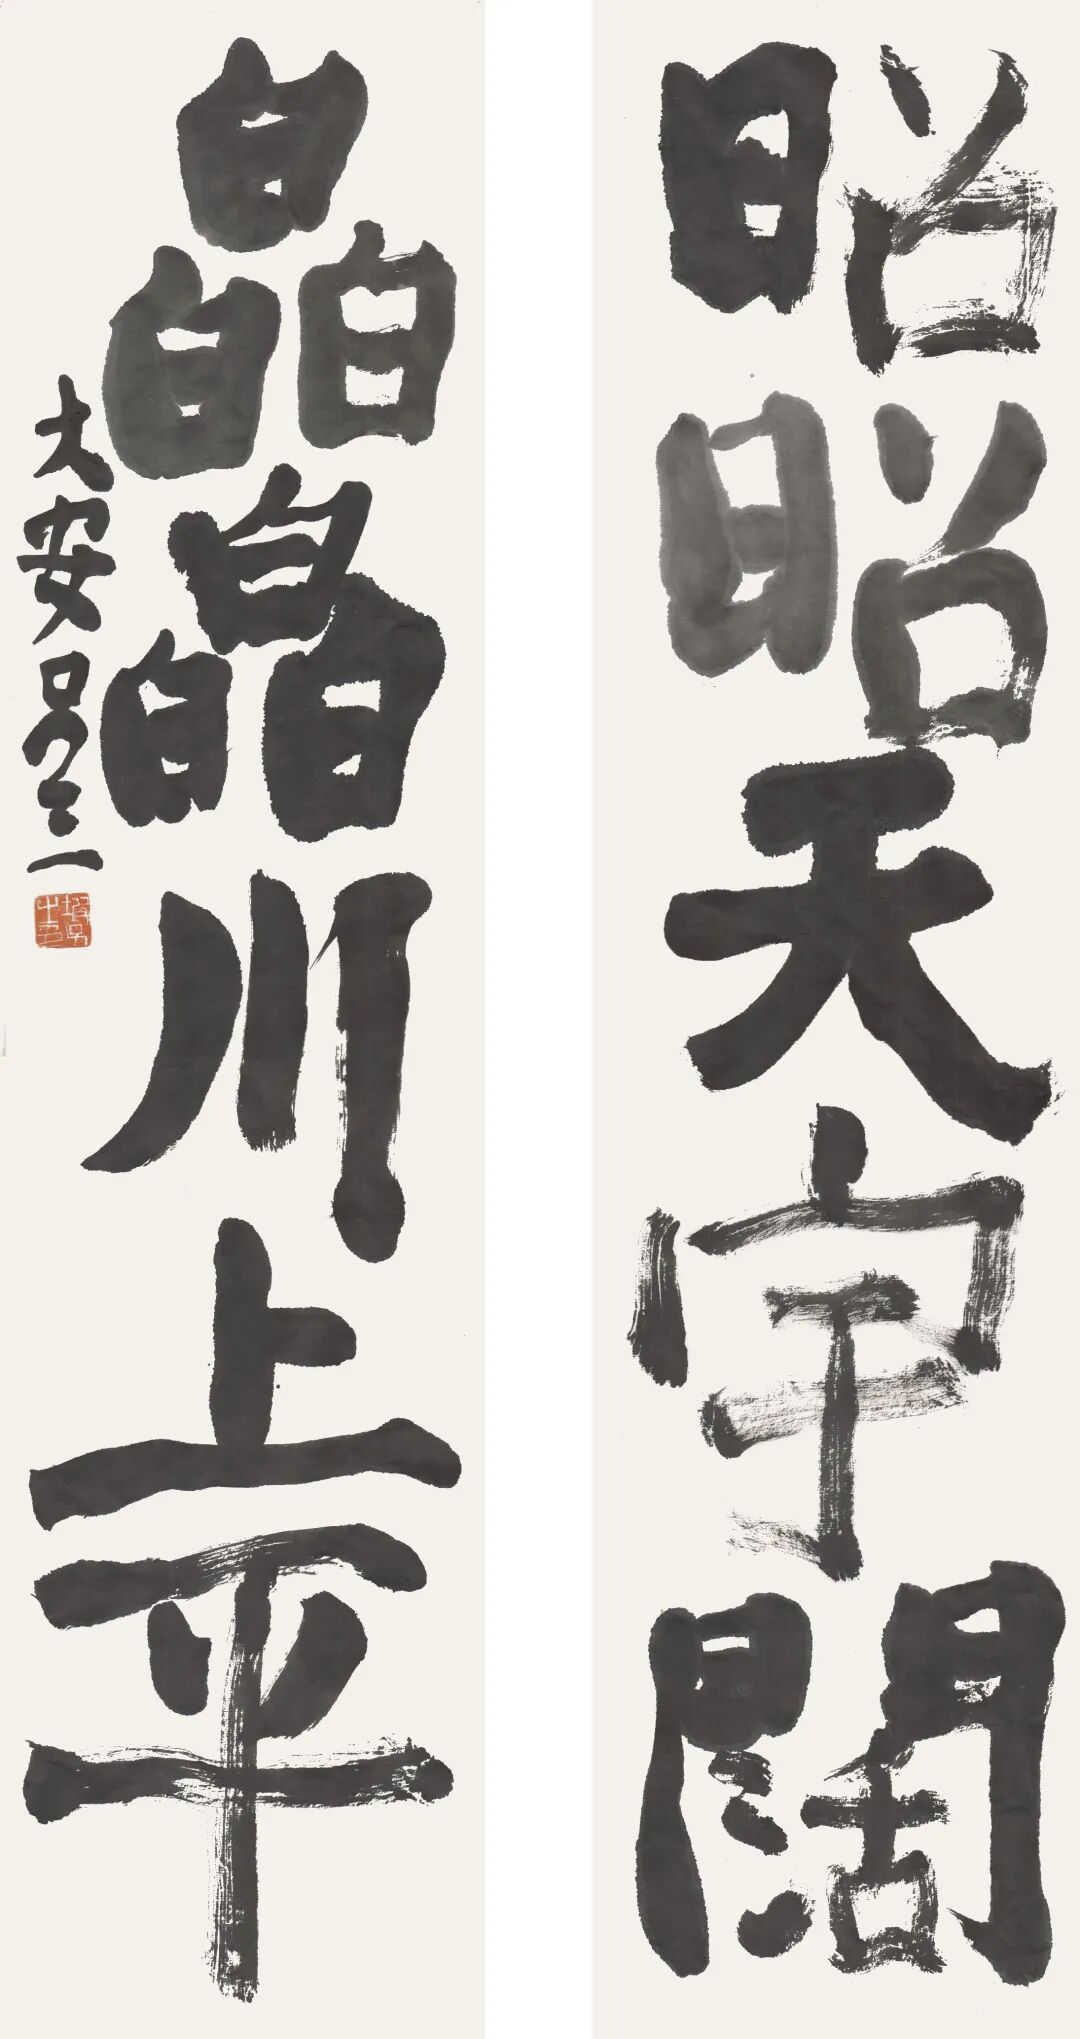 昭昭天宇闊
皛皛川上平
大安